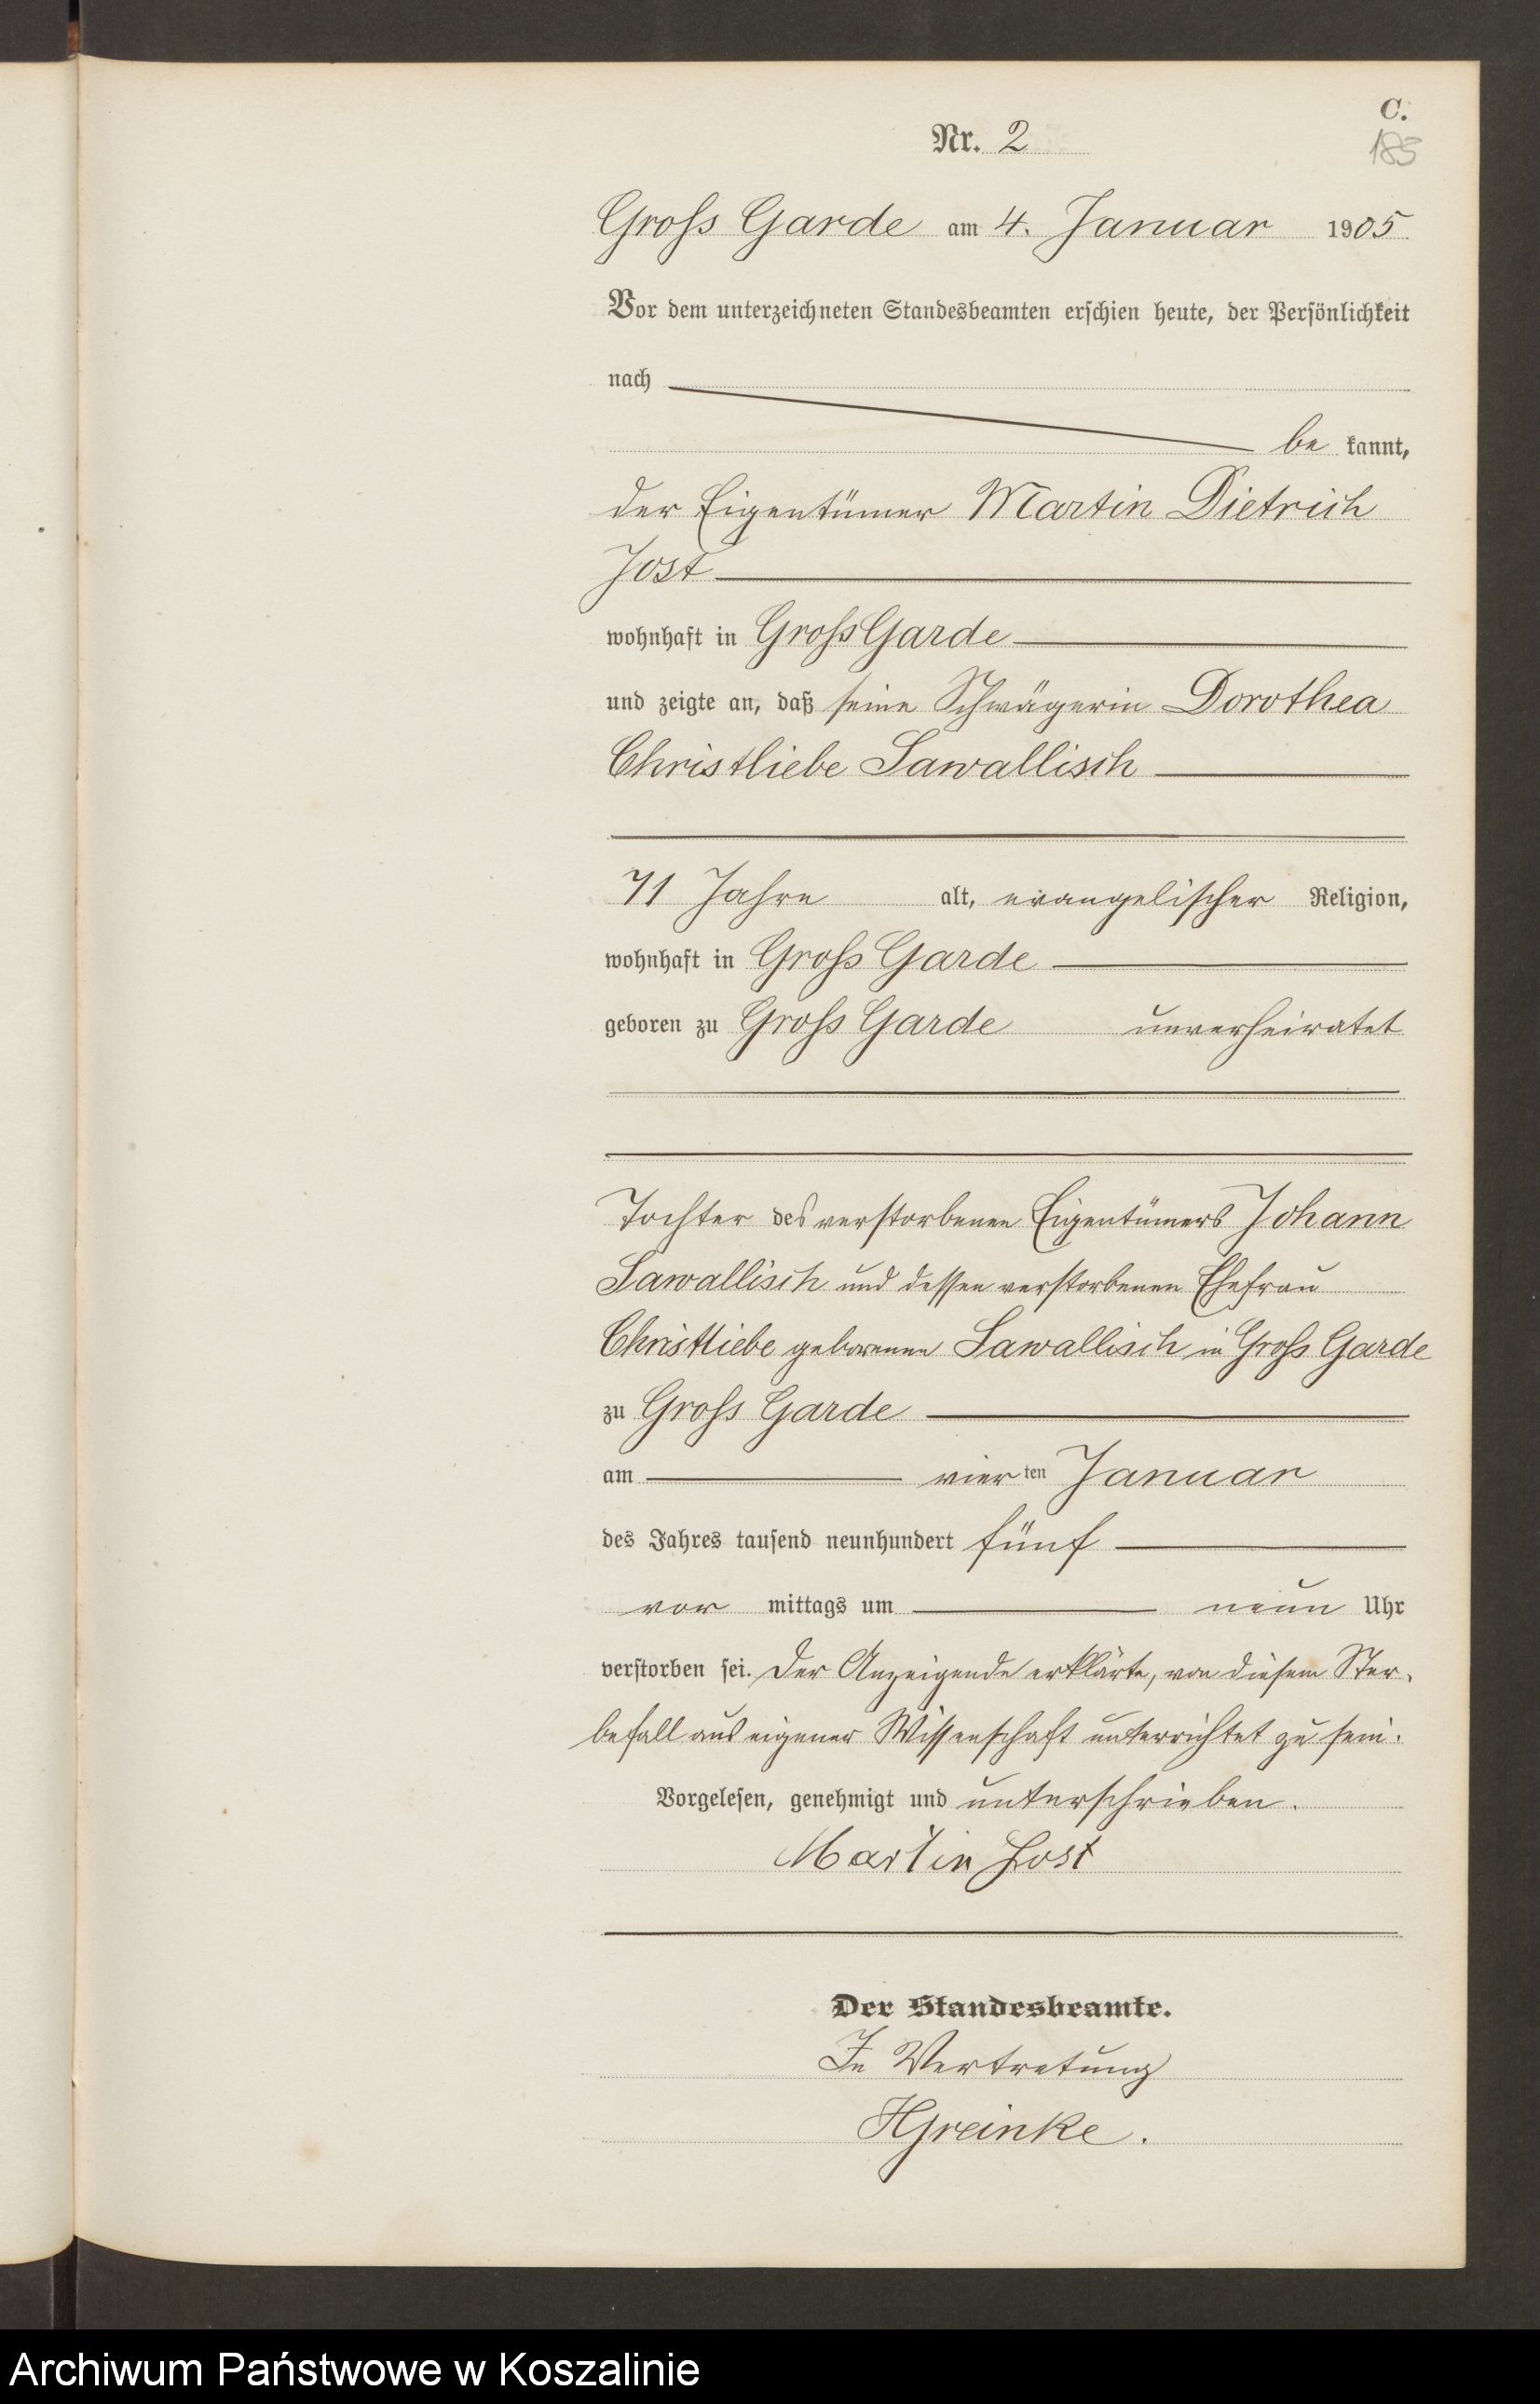 C.
Nr. 2
185
Gross Garde am 4. Januar 1905
Vor dem unterzeichneten Standesbeamten erschien heute, der Persönlichkeit
nach
be kannt,
der Eigentümer Martin Dietrich
Jost
wohnhaft in Gross Garde
und zeigte an, daß seine Schwägerin Dorothea
Christliebe Sawallisch
71 Jahre alt, evangelischer Religion,
wohnhaft in Gross Garde
geboren zu Gross Garde unverheiratet
Tochter des verstorbenen Eigentümers Johann
Sawallisch und dessen verstorbenen Ehefrau
Christliebe geborenen Sawallisch in Gross Garde
zu Gross Garde
am vier ten Januar
des Jahres tausend neunhundert fünf
vor mittags um neun Uhr
verstorben sei. Der Anzeigende erklärte, von diesem Ster-
befall aus eigener Wissenschaft unterrichtet zu sein.
Vorgelesen, genehmigt und unterschrieben.
Martin Jost
Der Standesbeamte.
In Vertretung
HGreinke.
Archiwum Państwowe w Koszalinie